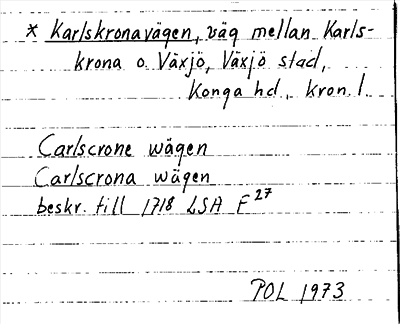 * Karlskronavägen, väg mellan Karls-
krona o. Växjö, Växjö stad,
Konga hd, kron. l.
Carlscrone wägen
Carlscrona wägen
beskr. till 1718 LSA F 27
POL 1973